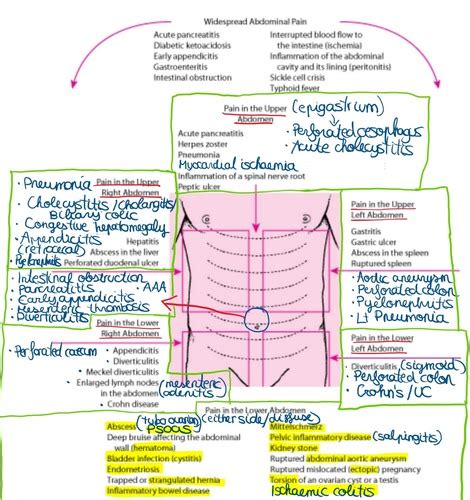 Widespread Abdominal Pain
Acute pancreatitis
Diabetic ketoacidosis
Early appendicitis
Gastroenteritis
Intestinal obstruction
Interrupted blood flow to
the intestine (ischemia)
Inflammation of the abdominal
cavity and its lining (peritonitis)
Sickle cell crisis
Typhoid fever
Pain in the Upper (epigastrium)
Abdomen
Acute pancreatitis
Herpes zoster
Pneumonia
Myocardial ischaemia
Inflammation of a spinal nerve root
Peptic ulcer
· Perforated oesophagus
· Acute cholecystitis
Pain in the Upper
Right Abdomen
· Pneumonia
· Cholecystitis / cholangitis
Biliary colic
· Congestive hepatomegaly
· Appendicitis
(retrocecal)
· Pyelonephritis
Hepatitis
Abscess in the liver
Perforated duodenal ulcer
Pain in the Upper
Left Abdomen
Gastritis
Gastric ulcer
Abscess in the spleen
Ruptured spleen
· Aortic aneurysm
· Perforated colon
· Pyelonephritis
· Lt Pneumonia
· Intestinal obstruction
· Pancreatitis · AAA
· Early appendicitis
· Mesenteric thrombosis
· Diverticulitis
Pain in the Lower
Right Abdomen
· Perforated caecum
• Appendicitis
• Diverticulitis
• Meckel diverticulitis
• Enlarged lymph nodes (mesenteric
in the abdomen adenitis)
• Crohn disease
Pain in the Lower
Left Abdomen
Diverticulitis (sigmoid)
· Perforated colon
· Crohn's / UC
Pain in the Lower Abdomen
(either side / diffuse)
Abscess (tubo ovarian)
Psoas
Deep bruise affecting the abdominal
wall (hematoma)
Bladder infection (cystitis)
Endometriosis
Trapped or strangulated hernia
Inflammatory bowel disease
Mittelschmerz
Pelvic inflammatory disease (salpingitis)
Kidney stone
Ruptured abdominal aortic aneurysm
Ruptured mislocated (ectopic) pregnancy
Torsion of an ovarian cyst or a testis
Ischaemic colitis